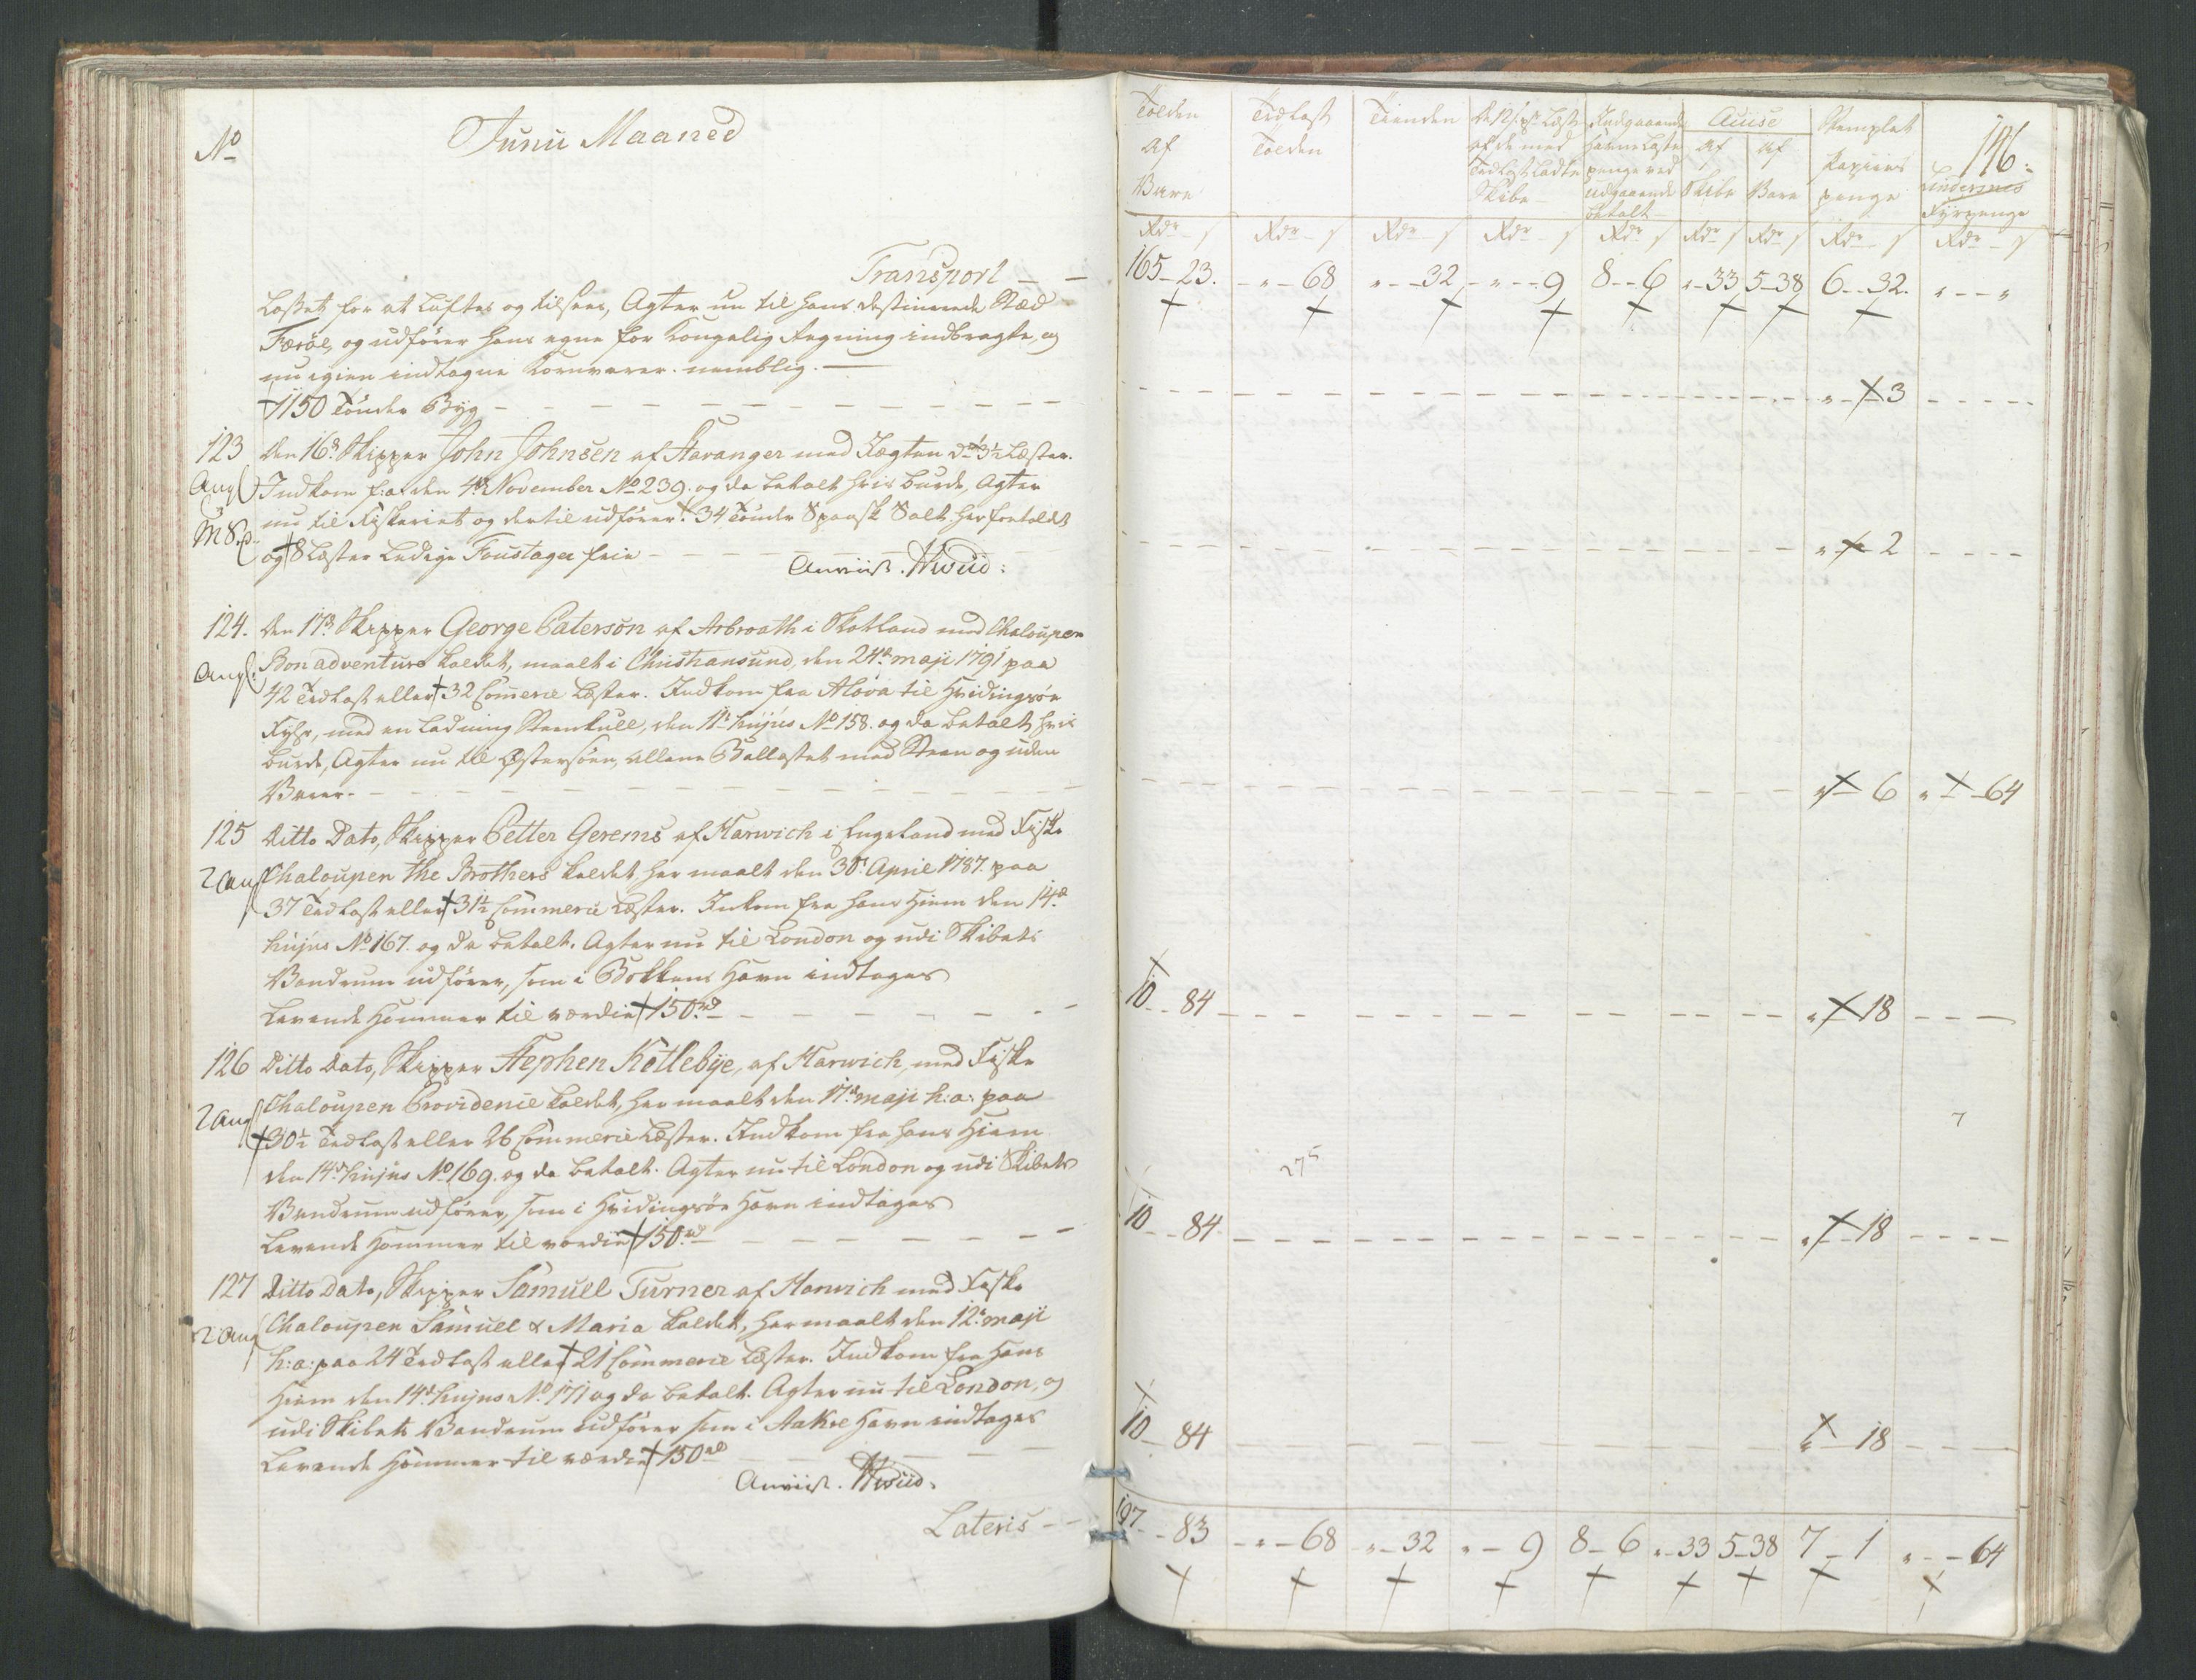 No
Junii Maaned
Transport
Losset for at luftes og tilsees, Agter nu til hans destinerede Stæd
Færöe, og udfører hans egne for Kongelig Regning indbragte, og
nu igien indtagne Kornvarer. nemblig.
1150 Tönder Byg
123 Den 16de Skipper John Johnsen af Stavanger med Jægten dr. 3½ Læster.
Indkom f: a: den 4de November No 239. og da betalt hvis burde, Agter
nu til Fiskeriet og dertil udfører 34 Tönder Spansk Salt her fortoldet
og 8 Læster ledige Foustager frie
Anviist. Hwiid:
124. Den 17de Skipper George Paterson af Arbroath i Skotland med Chaloupen
Angl:
Bonadventure kaldet, maalt i Christiansund, den 24de maji 1791 paa
42 Trælast eller 32 Commerce Læster. Indkom fra Alova til Hvidingsöe
Fyhr, med en Ladning Steenkull, den 11te hujus No 158. og da betalt, hvis
burde, Agter nu til Østersöen, allene Ballastet med Steen og uden
Varer.
125 Ditto Dato, Skipper Petter Gerems af Harwich i Engeland med Fiske
2 Ang
Chaloupen the Brothers kaldet her maalt den 30te April 1787. paa
37 Trælast eller 31½ Commerce Læster. Inkom fra hans Hiem den 14de
hujus No 167. og da betalt. Agter nu til London og udi Skibets
Vandrum udfører, som i Bokkens Havn indtages
Levende Hommer til værdie 150 rd
126 Ditto Dato, Skipper Stephen Kettlebye, af Harwich, med Fiske
2 Ang
Chaloupen Providence kaldet, her maalt den 17de maji h: a: paa
30½ Trælast eller 26 Commerce Læster. Indkom fra hans Hiem
den 14de hujus No 169. og da betalt. Agter nu til London og udi Skibets
Vandrum udfører, som i Hvidingsöe Havn indtages
Levende Hommer til værdie 150 rd
127 Ditto Dato, Skipper Samuell Turner af Harwich med Fiske
2 Ang
Chaloupen Samuel & Maria kaldet, her maalt den 12te maji
h: a: paa 24 Trælast eller 21 Commerce Læster. Indkom fra hans
Hiem den 14de hujus No 171 og da betalt. Agter nu til London, og
udi Skibets Vandrum udfører som i Aakre Havn indtages
Levende Hommer til værdie 150 rd
Anviist. Hwiid.
Lateris
Tolden af Vare
Trælast Tolden
Tienden
af de med Trælast ladte Skibe
Indgaaende Havne Læste penge ved udgaaende betalt
Accise
af Skibe
af Vare
Stemplet Papiirs penge
Lindernes Fyrpenge
146.
Rdr s Rdr s Rdr s Rdr s Rdr s Rdr s Rdr s Rdr s Rdr s
165 - 23. " - 68 " - 32 " - 9 8 - 6 " - 33 5 - 38 6 - 32. " - "
" - 3
" - 2
" - 6 " - 64
10 - 84 " - 18
7
275
10 - 84 " - 18
10 - 84 " - 18
197 - 83 " - 68 " - 32 " - 9 8 - 6 " - 33 5 - 38 7 - 1 " - 64